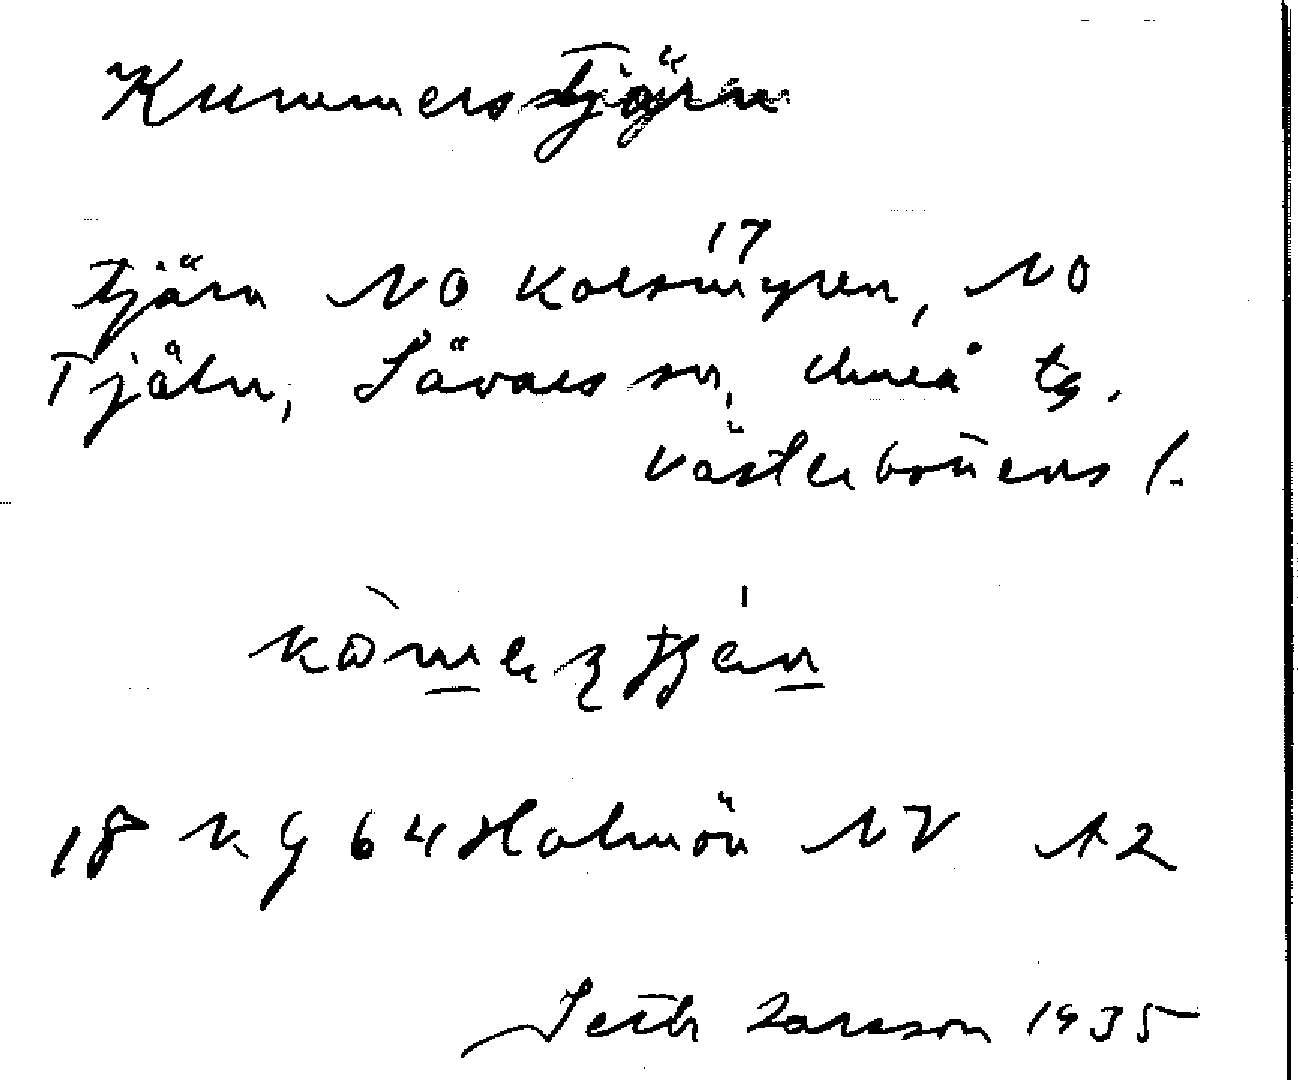 Kummerstjärn
17
tjärn NO Kolsmyren, NO
Tjäln, Sävars sn, Umeå tg.
Västerbottens l.
18 K g 64 Holmön NV A2
Seth Larsson 1935